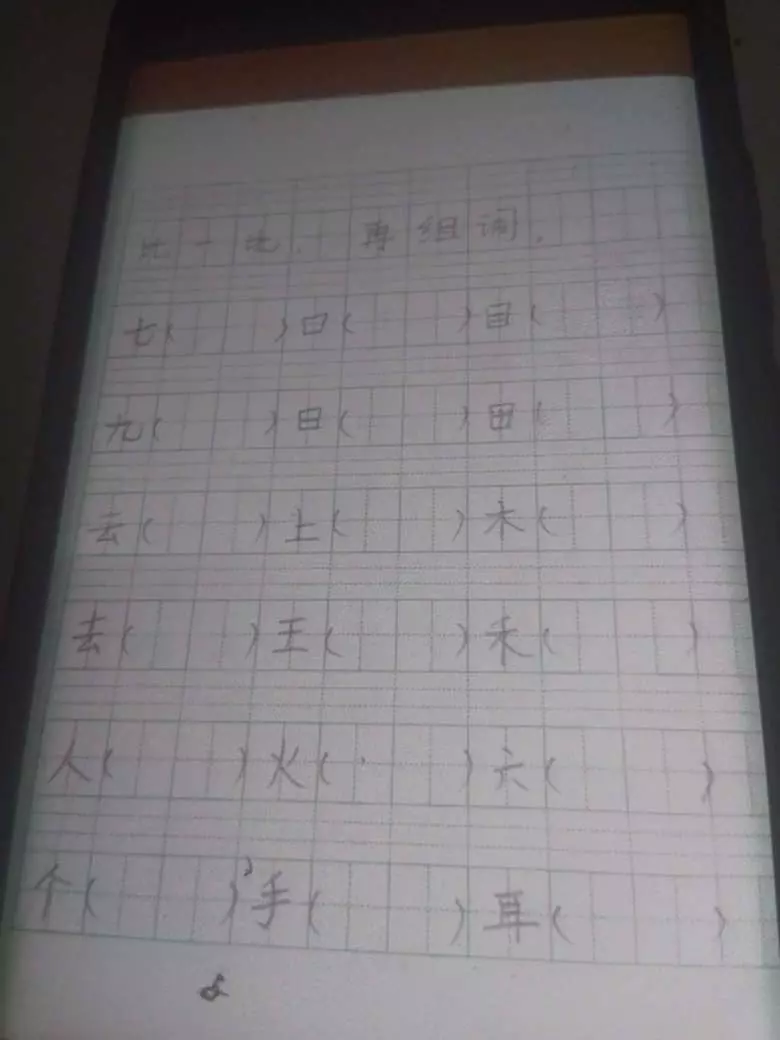 比一比.再组词.
七( )口( )目( )
九( )日( )田( )
云( )上( )木( )
去( )王( )禾( )
人( )火( )六( )
个( )手( )耳( )